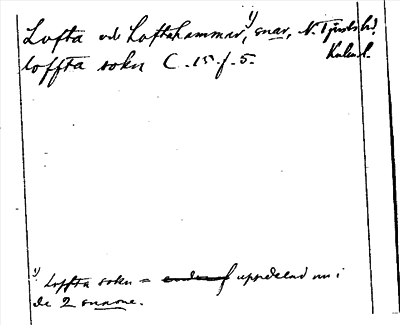 Lofta och Loftahammar, 1) snar, N. Tjusts hd.
Kalm. l.
Loffta sokn C. 15. f. 5.
1) Loffta sokn = uppdelad nu i
de 2 snarne.